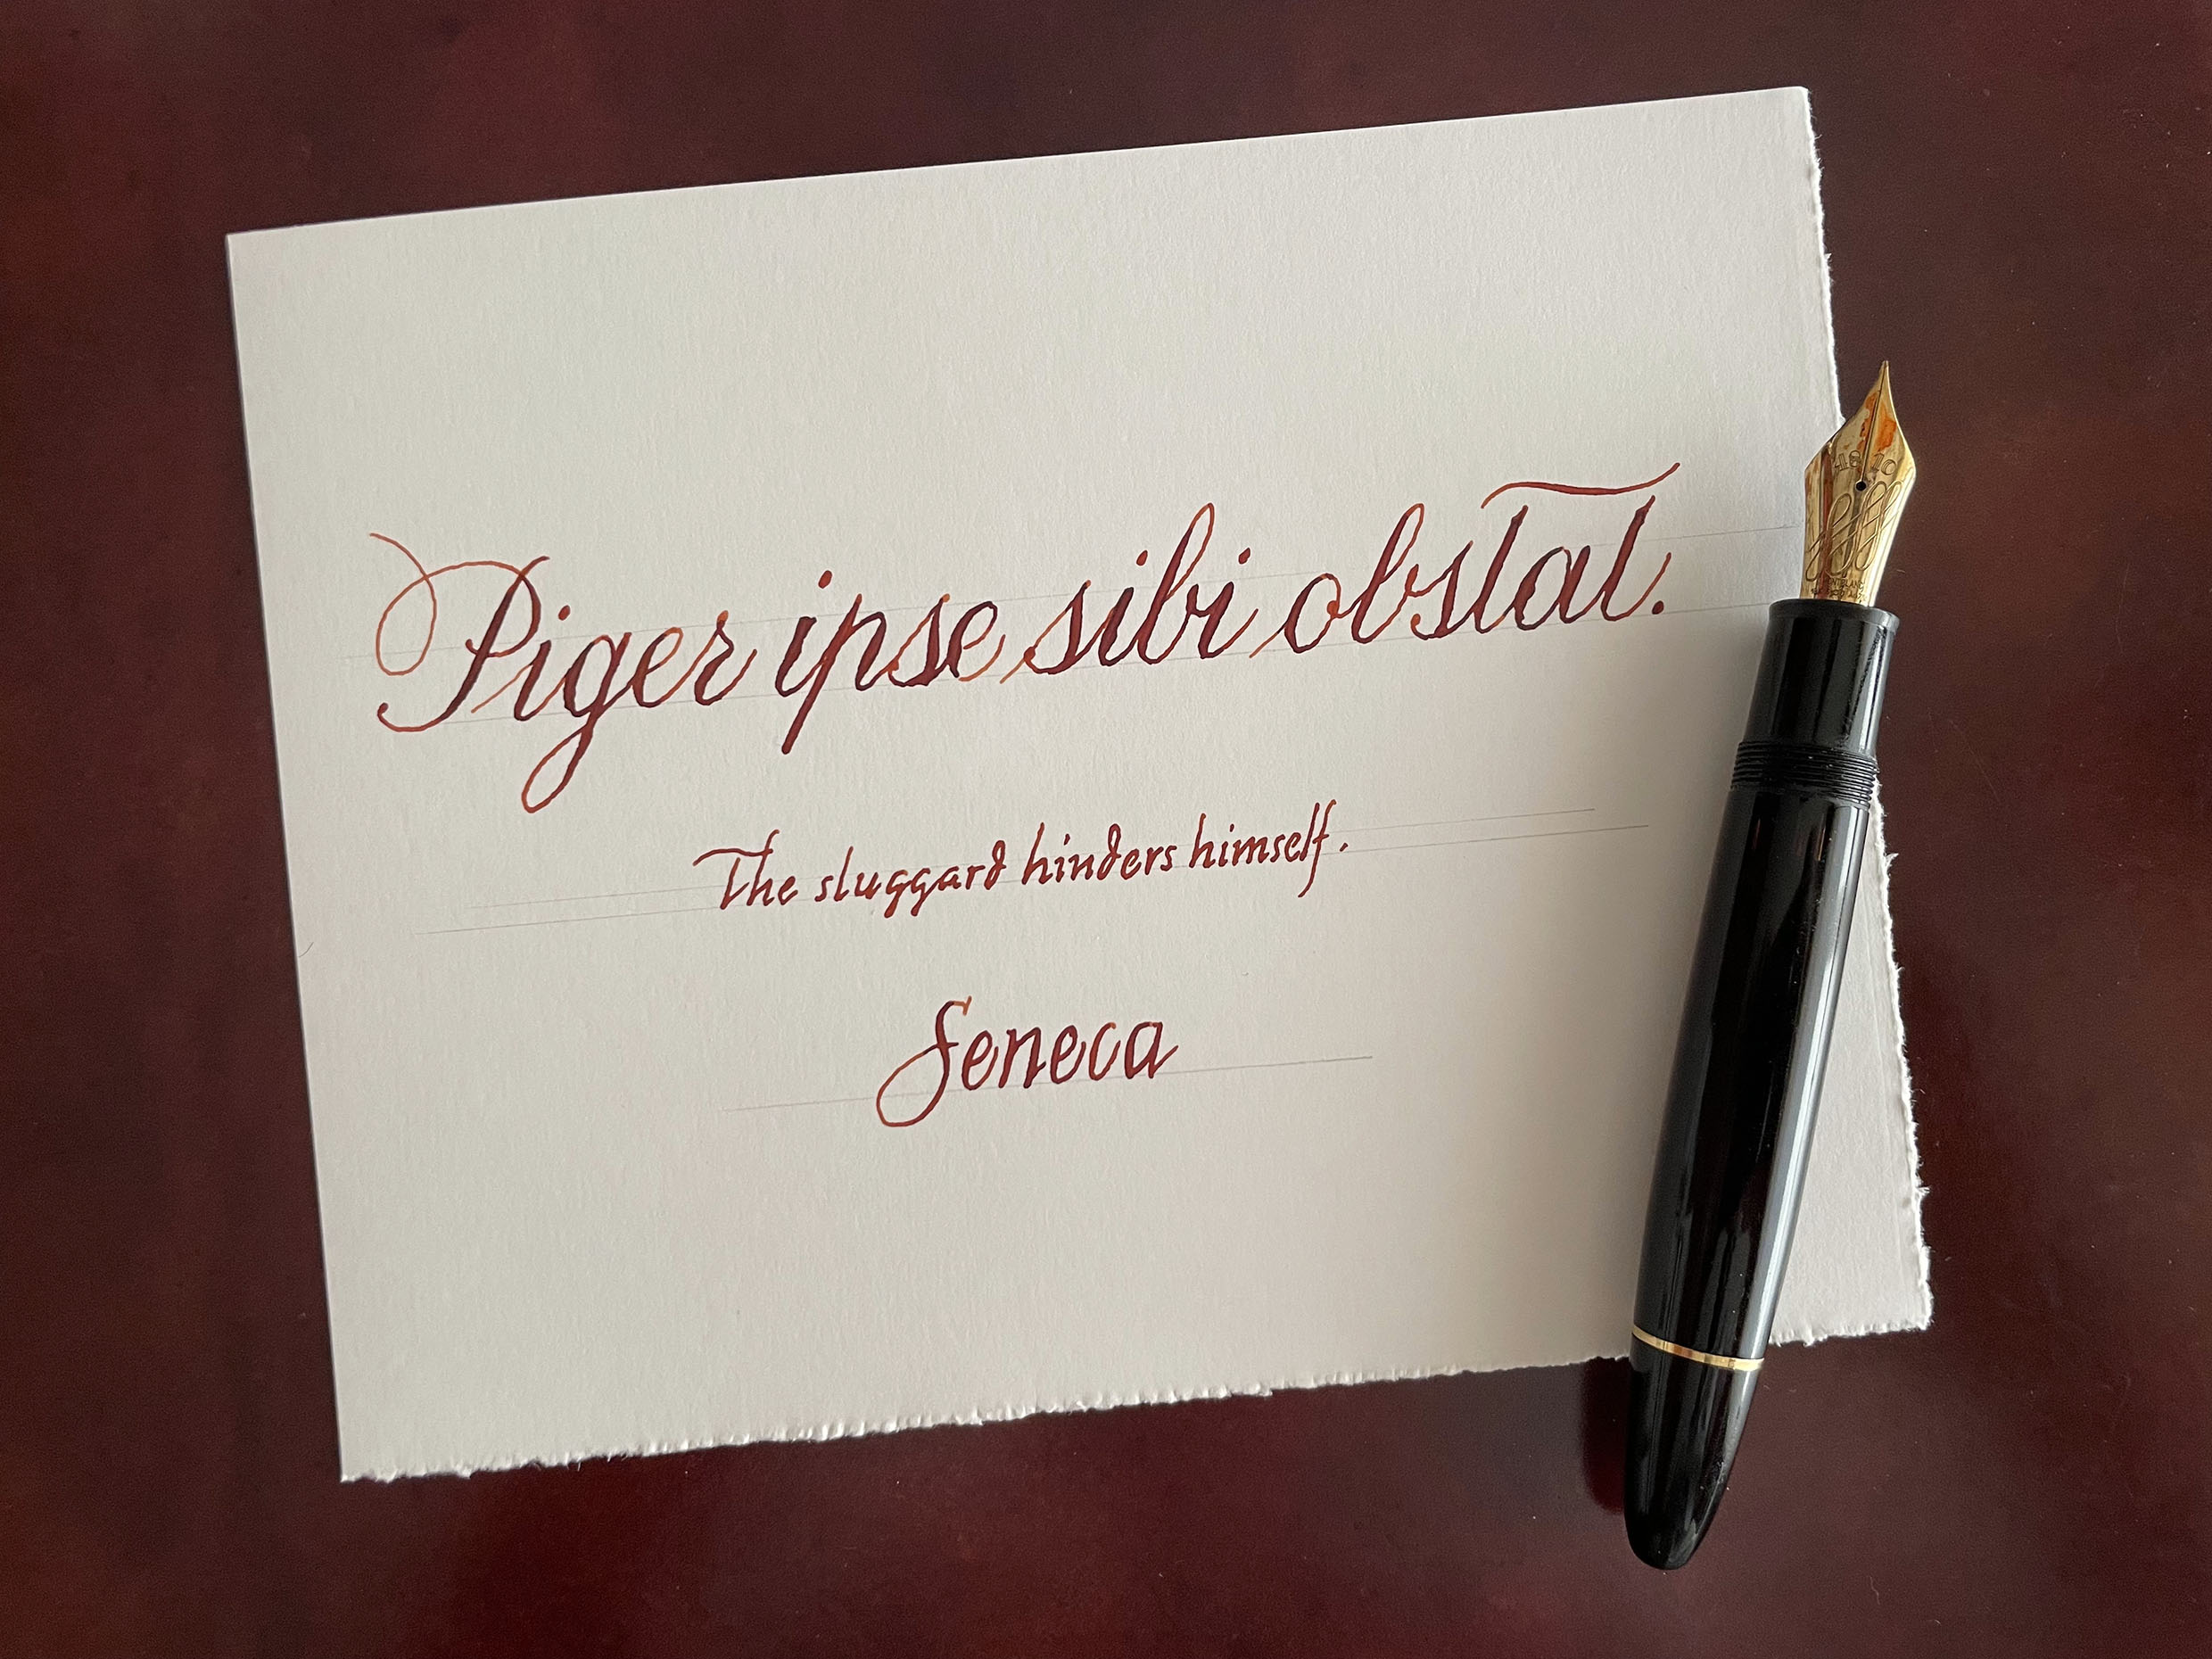 Piger ipse sibi obstat.
The sluggard hinders himself.
Seneca
4810
MONTBLANC